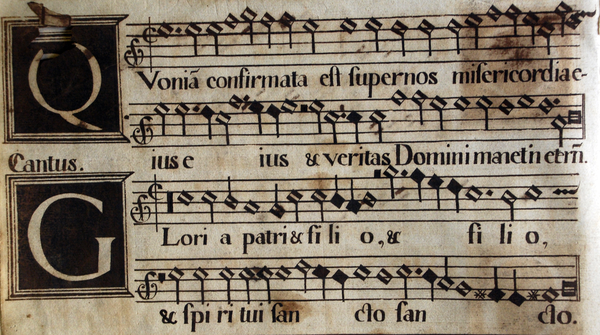 Q
Voniā confirmata est supernos misericordia e-
ius e ius & veritas Domini manet in etrñ.
Cantus.
G
Lori a patri & fi li o, & fi li o,
& spi ri tui san cto san cto.